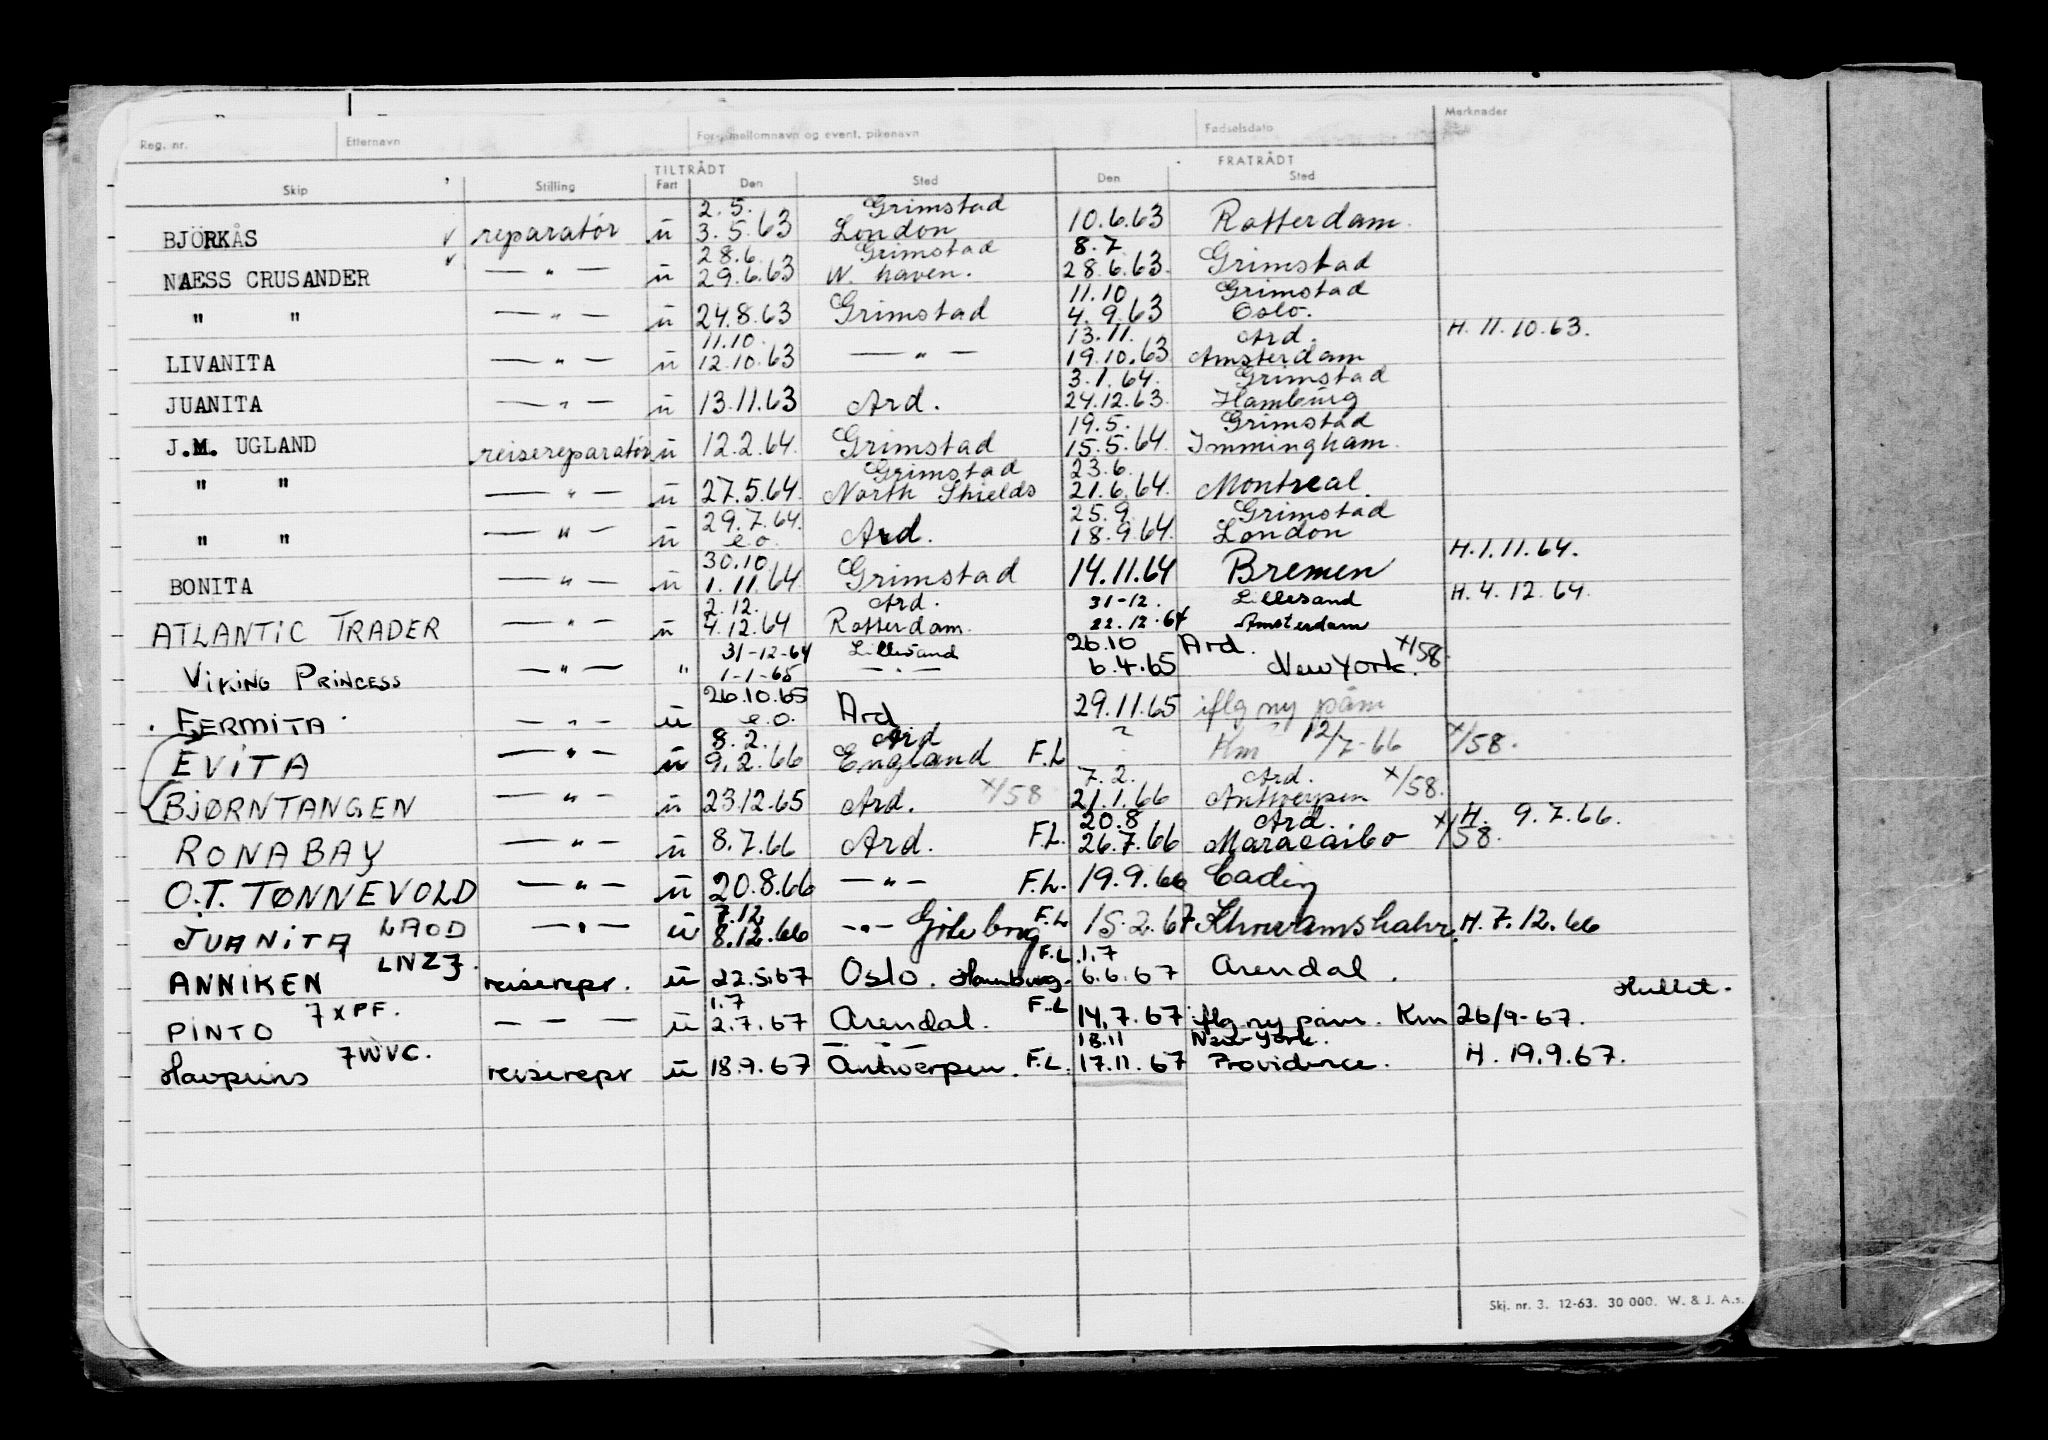 Merknader
Reg. nr. Etternavn For-, mellomnavn og event. pikenavn Fødselsdato
TILTRÅDT FRATRÅDT
Skip Stilling Fart Den Sted Den Sted
2.5. Grimstad
BJÖRKÅS reparatør u 3.5.63 London 10.6.63 Rotterdam.
28.6. Grimstad 8.7
NAESS CRUSANDER — " — u 29.6.63 W. haven. 28.6.63. Grimstad
11.10 Grimstad
" " — " — u 24.8.63 Grimstad 4.9.63 Oslo.
11.10. 13.11. Ard. H. 11.10.63.
LIVANITA — " — u 12.10.63 — " — 19.10.63 Amsterdam
3.1.64. Grimstad
JUANITA — " — u 13.11.63 Ard. 24.12.63. Hamburg
19.5. Grimstad
J.M. UGLAND reisereparatør u 12.2.64. Grimstad 15.5.64. Immingham.
Grimstad 23.6.
" " — " — u 27.5.64. North Shields 21.6.64. Montreal.
29.7.64. 25.9. Grimstad
" " — " — u e.o. Ard. 18.9.64. London
30.10 H. 1.11.64.
BONITA — " — u 1.11.64. Grimstad 14.11.64 Bremen
2.12. Ard. 31-12. Lillesand H. 4.12.64.
ATLANTIC TRADER — " — u 4.12.64 Rotterdam. 22.12.64 Amsterdam
31-12-64 Lillesand 26.10 Ard. x/58.
VIKING PRINCESS — " — " 1-1-65 — " — 6.4.65 New York.
26.10.65
. FERMITA. — " — u e.o. Ard 29.11.65 iflg ny påm
8.2. Ard ? Km 12/7-66 x/58.
EVITA — " — u 9.2.66 England F.L
7.2. Ard. x/58.
BJØRNTANGEN — " — u 23.12.65 Ard. x/58 21.1.66 Antwerpen
20.8 Ard. H. 9.7.66.
RONABAY — " — u 8.7.66 Ard. F.L. 26.7.66 Maracaibo x/58.
O.T. TØNNEVOLD — " — u 20.8.66 — " — F.L. 19.9.66
7.12
JUANITA LAOD — " — u 8.12.66 — " — Göteborg F.L 15.2.67 H. 7.12.66
F.L. 1.7
ANNIKEN LNZJ. reiserepr. u 22.5.67 Oslo. Hamburg. 6.6.67 Arendal.
1.7 F.L
PINTO 7XPF. — — — u 2.7.67 Arendal. 14.7.67 iflg ny påm. Km 26/9-67.
— " — 18.11 New York.
Havprins 7WVC. reiserepr u 18.9.67 Antwerpen. F.L. 17.11.67 Providence. H. 19.9.67.
Skj. nr. 3. 12-63. 30 000. W. & J. A.s.